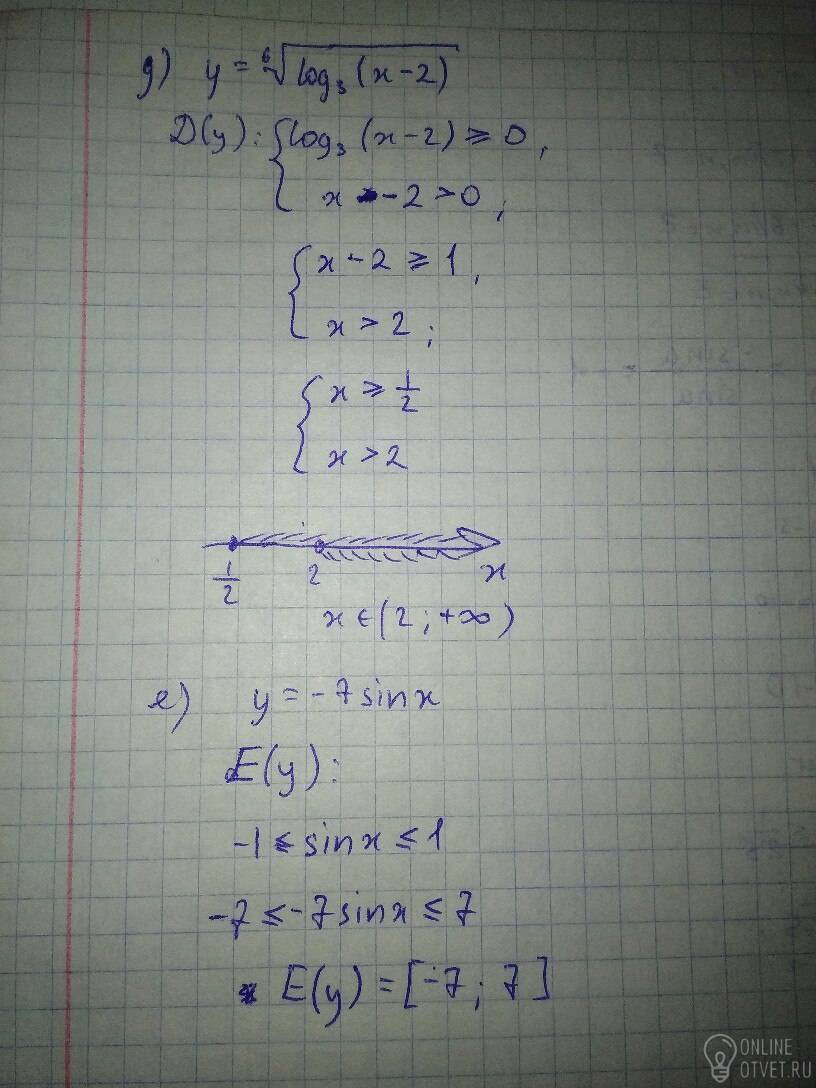 д) y = ⁶√log₃(x-2)
D(y): { log₃(x-2) ≥ 0,
x - 2 > 0;
{ x - 2 ≥ 1,
x > 2;
{ x ≥ 1/2
x > 2
1/2 2 x
x ∈ (2; +∞)
е) y = -7 sin x
E(y):
-1 ≤ sin x ≤ 1
-7 ≤ -7 sin x ≤ 7
E(y) = [-7; 7]
ONLINE
OTVET.RU